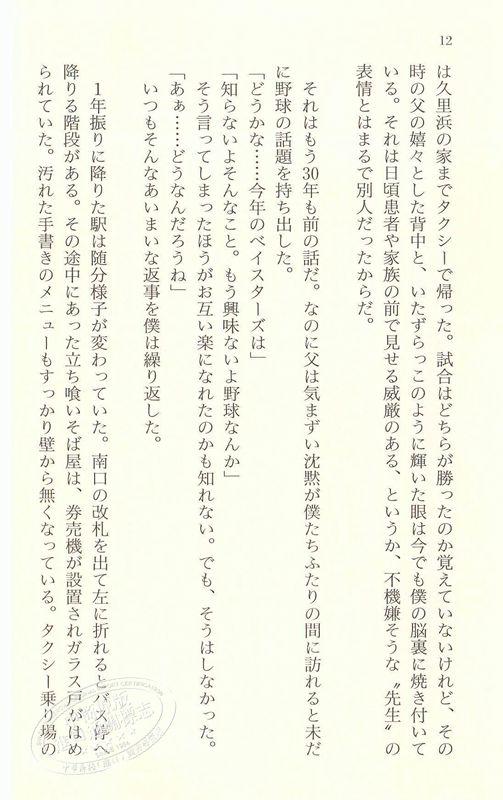 12
は久里浜の家までタクシーで帰った。試合はどちらが勝ったのか覚えていないけれど、その
時の父の嬉々とした背中と、いたずらっこのように輝いた眼は今でも僕の脳裏に焼き付いて
いる。それは日頃患者や家族の前で見せる威厳のある、というか、不機嫌そうな〝先生〟の
表情とはまるで別人だったからだ。
それはもう30年も前の話だ。なのに父は気まずい沈黙が僕たちふたりの間に訪れると未だ
に野球の話題を持ち出した。
「どうかな……今年のベイスターズは」
「知らないよそんなこと。もう興味ないよ野球なんか」
そう言ってしまったほうがお互い楽になれたのかも知れない。でも、そうはしなかった。
「あぁ……どうなんだろうね」
いつもそんなあいまいな返事を僕は繰り返した。
1年振りに降りた駅は随分様子が変わっていた。南口の改札を出て左に折れるとバス停へ
降りる階段がある。その途中にあった立ち喰いそば屋は、券売機が設置されガラス戸がはめ
られていた。汚れた手書きのメニューもすっかり壁から無くなっている。タクシー乗り場の